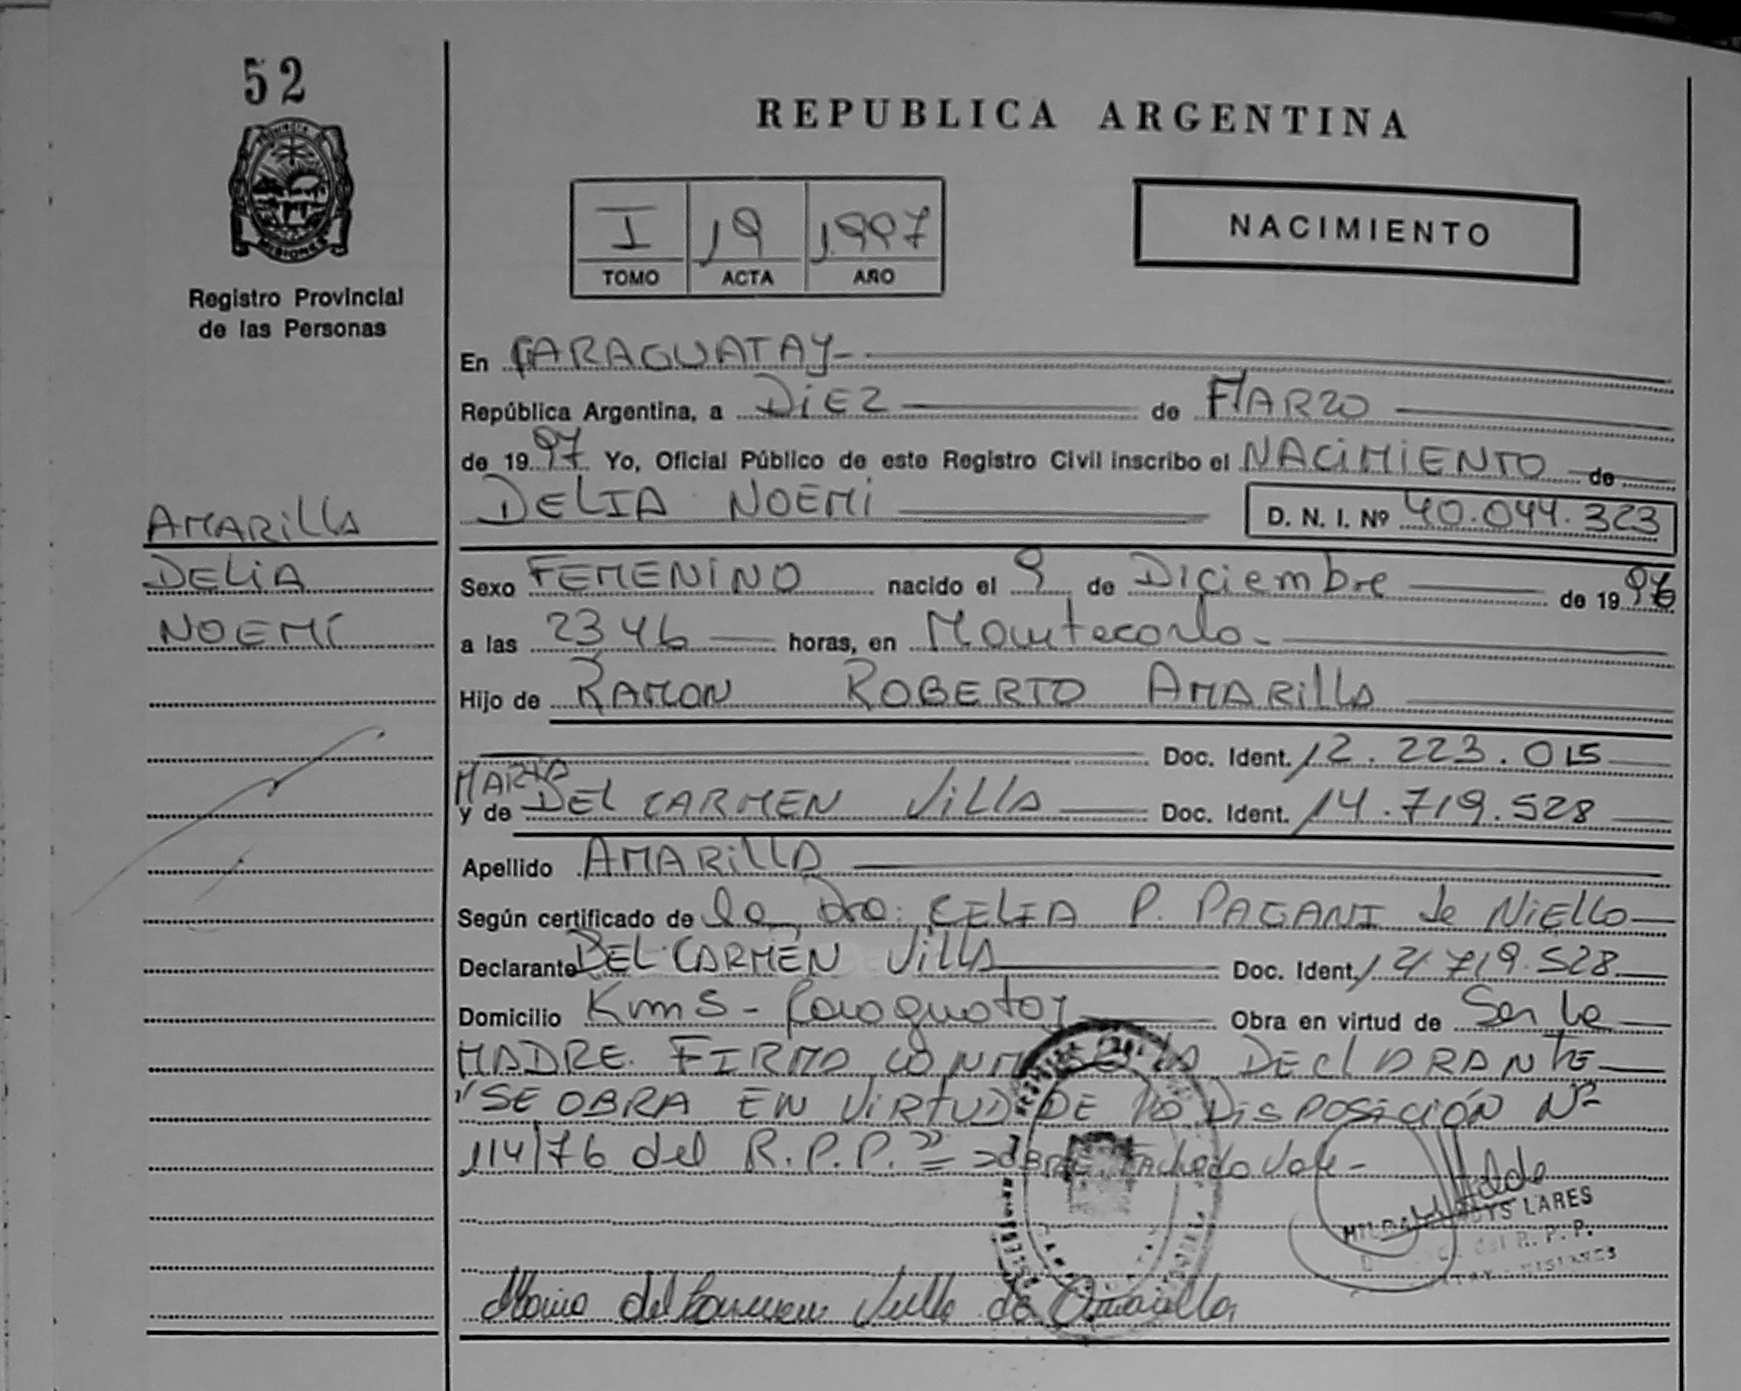 52
REPUBLICA ARGENTINA
MISIONES
Registro Provincial
de las Personas
I 19 1997
TOMO ACTA AÑO
NACIMIENTO
En CARAGUATAY
República Argentina, a DIEZ de MARZO
de 1997 Yo, Oficial Público de este Registro Civil inscribo el NACIMIENTO de
DELIA NOEMI D. N. I. Nº 40.044.323
AMARILLA
DELIA
NOEMÍ
Sexo FEMENINO nacido el 9 de Diciembre de 1996
a las 23 46 horas, en Montecarlo
Hijo de RAMON ROBERTO AMARILLA
Doc. Ident. 12.223.015
MARIA
y de DEL CARMEN VILLA Doc. Ident. 14.719.528
Apellido AMARILLA
Según certificado de la Dra. CELIA P. PAGANI de NIELLO
Declarante DEL CARMEN VILLA Doc. Ident. 14.719.528
Domicilio Km 5 - Caraguatay Obra en virtud de Ser la
MADRE. FIRMA LA DECLARANTE
"SE OBRA EN VIRTUD DE LA DISPOSICIÓN Nº
114/76 del R.P.P." Tachado Vale -
LARES
R. P. P.
MISIONES
Maria del Carmen Villa de Amarilla